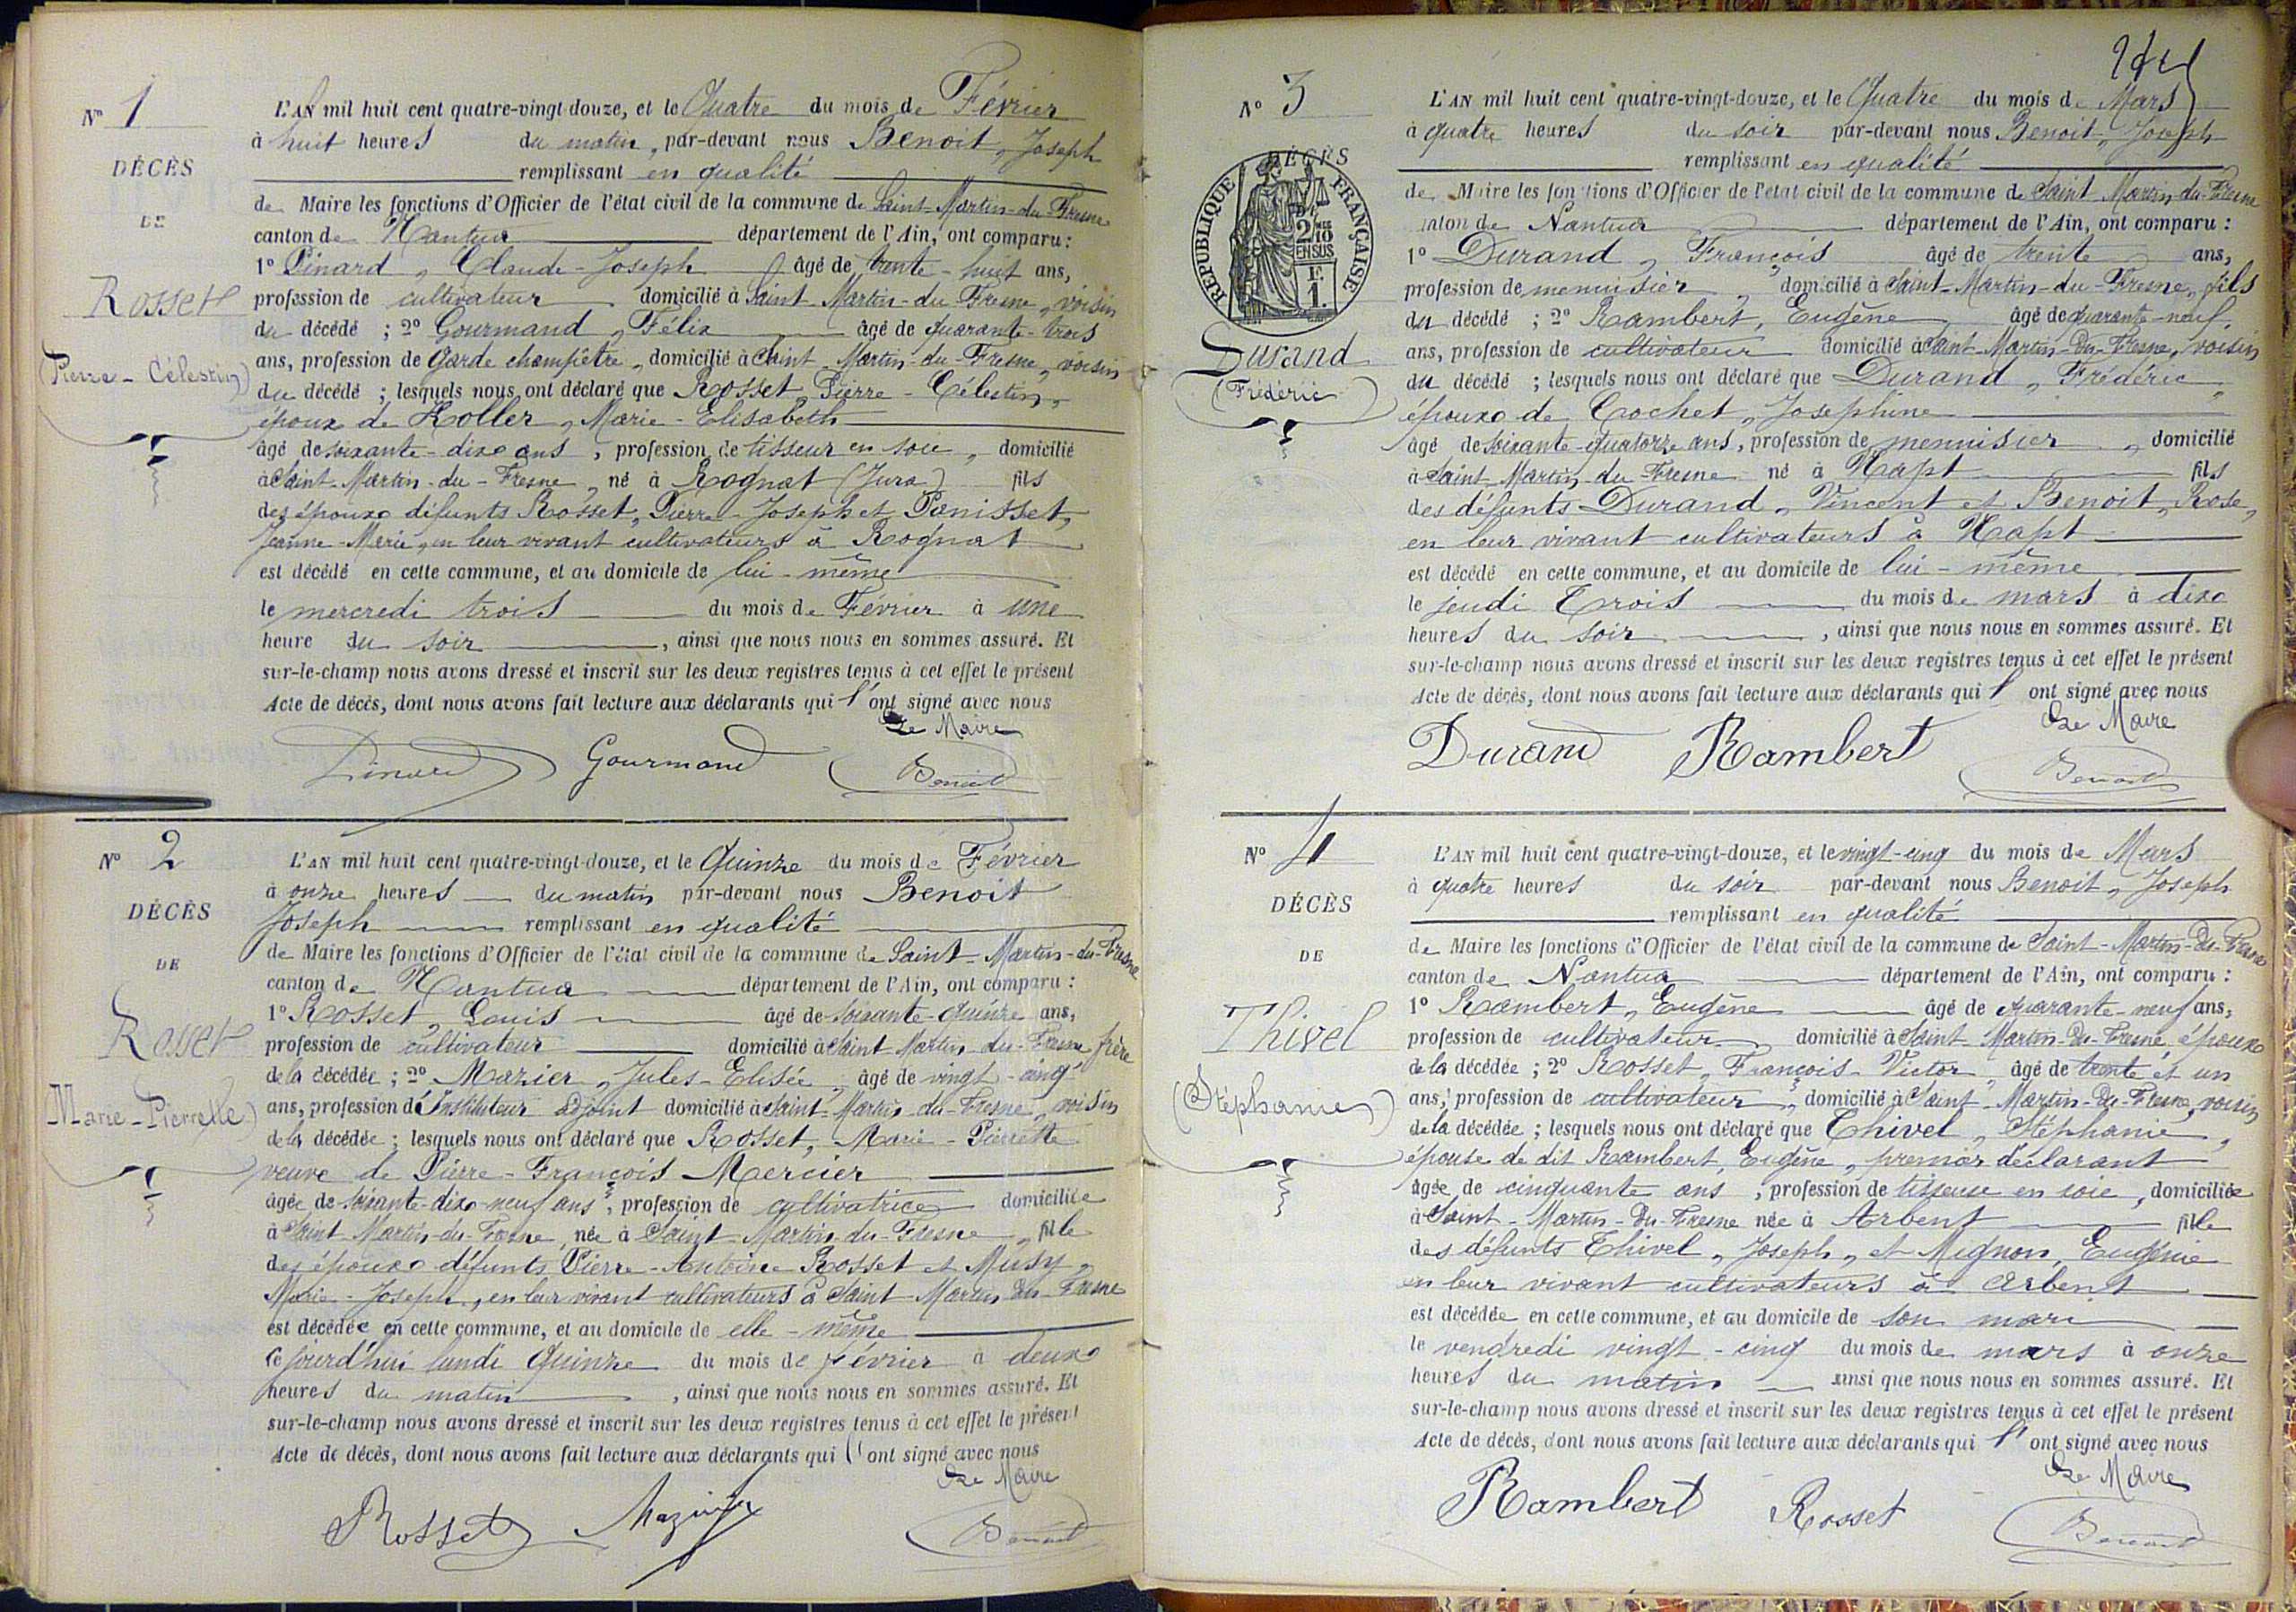 N° 1
DÉCÈS
DE
Rosset
(Pierre-Célestin)
L'AN mil huit cent quatre-vingt-douze, et le Quatre du mois de Février
à huit heures du matin, par-devant nous Benoit, Joseph
remplissant en qualité
de Maire les fonctions d'Officier de l'état civil de la commune de Saint-Martin-du-Fresne
canton de Nantua département de l'Ain, ont comparu :
1° Pinard, Claude-Joseph âgé de trente-huit ans,
profession de cultivateur domicilié à Saint-Martin-du-Fresne, voisin
du décédé ; 2° Gourmand, Félix âgé de quarante-trois
ans, profession de garde champêtre, domicilié à Saint-Martin-du-Fresne, voisin
du décédé ; lesquels nous ont déclaré que Rosset, Pierre-Célestin,
époux de Holler, Marie-Elisabeth
âgé de soixante-dix ans, profession de tisseur en soie, domicilié
à Saint-Martin-du-Fresne, né à Rognat (Jura) fils
des époux défunts Rosset, Pierre-Joseph et Panisset,
Jeanne-Marie, en leur vivant cultivateurs à Rognat
est décédé en cette commune, et au domicile de lui-même
le mercredi trois du mois de Février à une
heure du soir, ainsi que nous nous en sommes assuré. Et
sur-le-champ nous avons dressé et inscrit sur les deux registres tenus à cet effet le présent
Acte de décès, dont nous avons fait lecture aux déclarants qui l'ont signé avec nous
Le Maire
Pinard Gourmand Benoit
N° 2
DÉCÈS
DE
Rosset
(Marie-Pierrette)
L'AN mil huit cent quatre-vingt-douze, et le Quinze du mois de Février
à onze heures du matin par-devant nous Benoit
Joseph remplissant en qualité
de Maire les fonctions d'Officier de l'état civil de la commune de Saint-Martin-du-Fresne
canton de Nantua département de l'Ain, ont comparu :
1° Rosset, Louis âgé de soixante-quinze ans,
profession de cultivateur domicilié à Saint-Martin-du-Fresne, frère
de la décédée ; 2° Mazier, Jules-Elisée, âgé de vingt-cinq
ans, profession d'Instituteur adjoint domicilié à Saint-Martin-du-Fresne, voisin
de la décédée ; lesquels nous ont déclaré que Rosset, Marie-Pierrette
veuve de Pierre-François Mercier
âgée de soixante-dix-neuf ans, profession de cultivatrice domiciliée
à Saint-Martin-du-Fresne, née à Saint-Martin-du-Fresne, fille
des époux défunts Pierre-Antoine Rosset et Musy,
Marie-Joseph, en leur vivant cultivateurs à Saint-Martin-du-Fresne
est décédée en cette commune, et au domicile de elle-même
ce jourd'hui lundi quinze du mois de février à deux
heures du matin, ainsi que nous nous en sommes assuré. Et
sur-le-champ nous avons dressé et inscrit sur les deux registres tenus à cet effet le présent
Acte de décès, dont nous avons fait lecture aux déclarants qui l'ont signé avec nous
Le Maire
Rosset Mazier Benoit
N° 3
DÉCÈS
RÉPUBLIQUE FRANÇAISE
2/10
EN SUS
1F.
Durand
(Frédéric)
L'AN mil huit cent quatre-vingt-douze, et le Quatre du mois de Mars
à quatre heures du soir par-devant nous Benoit, Joseph
remplissant en qualité
de Maire les fonctions d'Officier de l'état civil de la commune de Saint-Martin-du-Fresne
canton de Nantua département de l'Ain, ont comparu :
1° Durand, François âgé de trente ans,
profession de menuisier, domicilié à Saint-Martin-du-Fresne, fils
du décédé ; 2° Rambert, Eugène âgé de quarante-neuf,
ans, profession de cultivateur domicilié à Saint-Martin-du-Fresne, voisin
du décédé ; lesquels nous ont déclaré que Durand, Frédéric,
époux de Cochet, Josephine
âgé de soixante-quatorze ans, profession de menuisier, domicilié
à Saint-Martin-du-Fresne né à Hapt fils
des défunts Durand, Vincent et Benoit, Rose,
en leur vivant cultivateurs à Hapt
est décédé en cette commune, et au domicile de lui-même
le jeudi Trois du mois de mars à dix
heures du soir, ainsi que nous nous en sommes assuré. Et
sur-le-champ nous avons dressé et inscrit sur les deux registres tenus à cet effet le présent
Acte de décès, dont nous avons fait lecture aux déclarants qui l'ont signé avec nous
Le Maire
Durand Rambert Benoit
N° 4
DÉCÈS
DE
Thivel
(Stéphanie)
L'AN mil huit cent quatre-vingt-douze, et le vingt-cinq du mois de Mars
à quatre heures du soir par-devant nous Benoit, Joseph
remplissant en qualité
de Maire les fonctions d'Officier de l'état civil de la commune de Saint-Martin-du-Fresne
canton de Nantua département de l'Ain, ont comparu :
1° Rambert, Eugène âgé de quarante-neuf ans,
profession de cultivateur, domicilié à Saint-Martin-du-Fresne, époux
de la décédée ; 2° Rosset, François-Victor, âgé de trente et un
ans, profession de cultivateur, domicilié à Saint-Martin-du-Fresne, voisin
de la décédée ; lesquels nous ont déclaré que Thivel, Stéphanie,
épouse de dit Rambert, Eugène, premier déclarant
âgée de cinquante ans, profession de tisseuse en soie, domiciliée
à Saint-Martin-du-Fresne née à Arbent fille
des défunts Thivel, Joseph, et Mignon, Eugénie
en leur vivant cultivateurs à Arbent
est décédée en cette commune, et au domicile de son mari
le vendredi vingt-cinq du mois de mars à onze
heures du matin ainsi que nous nous en sommes assuré. Et
sur-le-champ nous avons dressé et inscrit sur les deux registres tenus à cet effet le présent
Acte de décès, dont nous avons fait lecture aux déclarants qui l'ont signé avec nous
Le Maire
Rambert Rosset Benoit